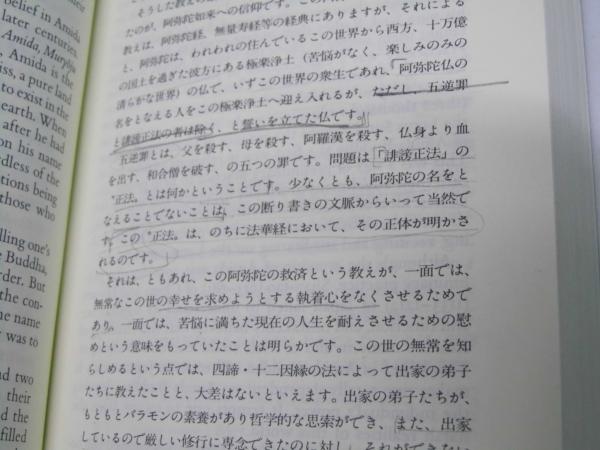 belief in Amida
later centuries
Amida, Muryōju
Amida is the
iss, a pure land
to exist in the
earth. When
after he had
on his name
rdless of the
tions being
those who
lling one's
Buddha,
rder. But
the con-
name
was to
nd two
their
d the
filled
そうした教え
たのが、阿弥陀如来への信仰です。これ
教えは、阿弥陀経、無量寿経等の経典にありますが、それによる
と、阿弥陀は、われわれの住んでいるこの世界から西方、十万億
の国土を過ぎた彼方にある極楽浄土（苦悩がなく、楽しみのみの
清らかな世界）の仏で、いずこの世界の衆生であれ、「阿弥陀仏の
名をとなえる人をこの極楽浄土へ迎え入れるが、ただし、五逆罪
と誹謗正法の者は除く、と誓いを立てた仏です。
五逆罪とは、父を殺す、母を殺す、阿羅漢を殺す、仏身より血
を出す、和合僧を破す、の五つの罪です。問題は「誹謗正法」の
〝正法〟とは何かということです。少なくとも、阿弥陀の名をと
なえることでないことは、この断り書きの文脈からいって当然で
す。この〝正法〟は、のちに法華経において、その正体が明かさ
れるのです。
それは、ともあれ、この阿弥陀の救済という教えが、一面では、
無常なこの世の幸せを求めようとする執着心をなくさせるためで
あり、一面では、苦悩に満ちた現在の人生を耐えさせるための慰
めという意味をもっていたことは明らかです。この世の無常を知
らしめるという点では、四諦・十二因縁の法によって出家の弟子
たちに教えたことと、大差はないといえます。出家の弟子たちが、
もともとバラモンの素養があり哲学的な思索ができ、また、出家
しているので厳しい修行に専念できたのに対し、それができない